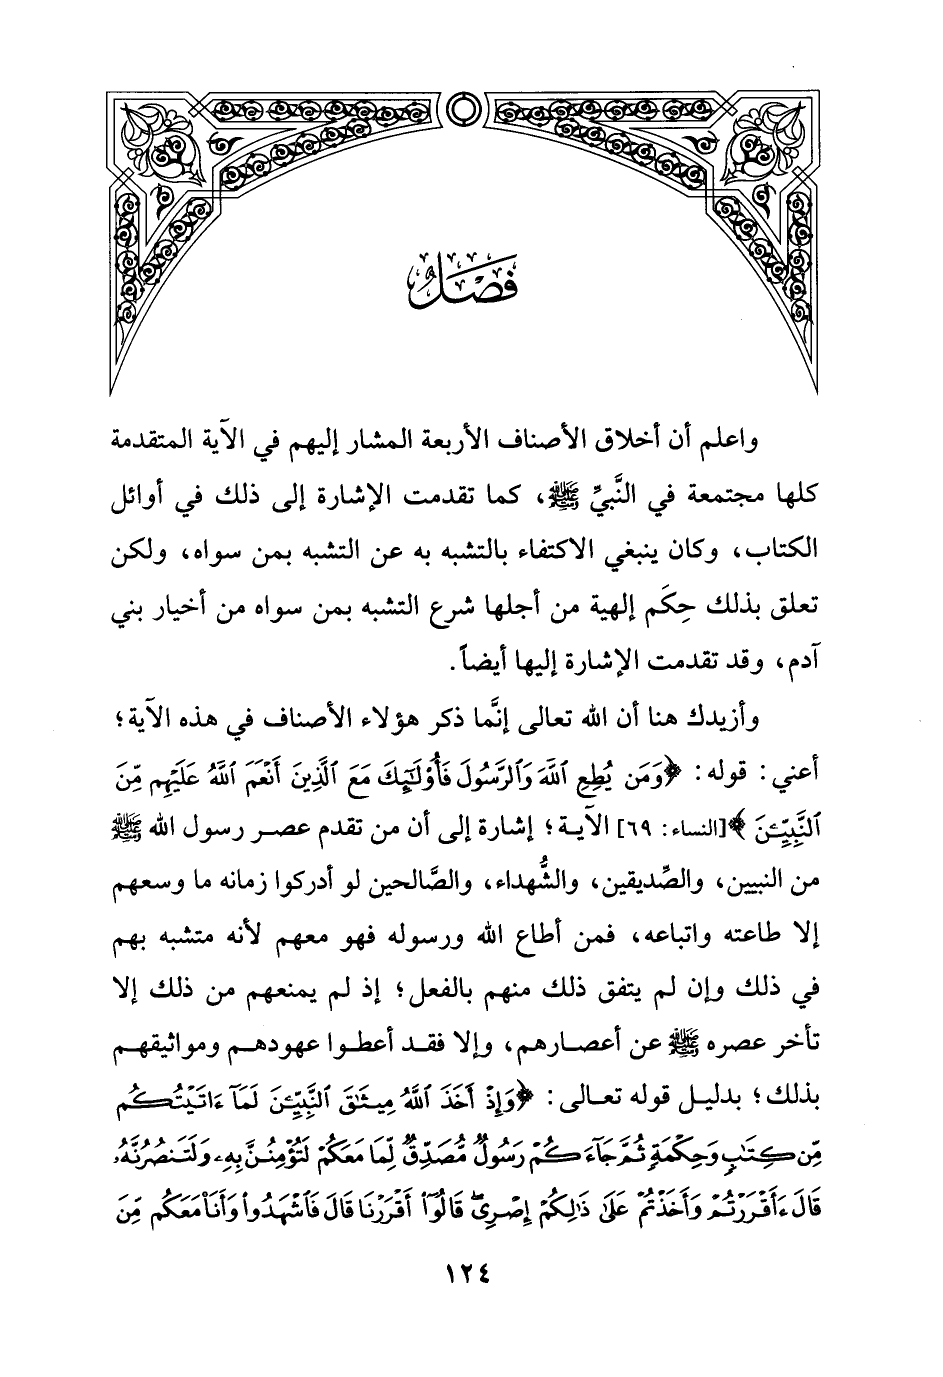 فَصْلٌ
واعلم أن أخلاق الأصناف الأربعة المشار إليهم في الآية المتقدمة
كلها مجتمعة في النَّبيِّ ﷺ، كما تقدمت الإشارة إلى ذلك في أوائل
الكتاب، وكان ينبغي الاكتفاء بالتشبه به عن التشبه بمن سواه، ولكن
تعلق بذلك حِكَم إلهية من أجلها شرع التشبه بمن سواه من أخيار بني
آدم، وقد تقدمت الإشارة إليها أيضاً.
وأزيدك هنا أن الله تعالى إنَّما ذكر هؤلاء الأصناف في هذه الآية؛
أعني: قوله: ﴿وَمَن يُطِعِ ٱللَّهَ وَٱلرَّسُولَ فَأُوْلَٰٓئِكَ مَعَ ٱلَّذِينَ أَنۡعَمَ ٱللَّهُ عَلَيۡهِم مِّنَ
ٱلنَّبِيِّـۧنَ﴾[النساء: ٦٩] الآية؛ إشارة إلى أن من تقدم عصر رسول الله ﷺ
من النبيين، والصِّديقين، والشُّهداء، والصَّالحين لو أدركوا زمانه ما وسعهم
إلا طاعته واتباعه، فمن أطاع الله ورسوله فهو معهم لأنه متشبه بهم
في ذلك وإن لم يتفق ذلك منهم بالفعل؛ إذ لم يمنعهم من ذلك إلا
تأخر عصره ﷺ عن أعصارهم، وإلا فقد أعطوا عهودهم ومواثيقهم
بذلك؛ بدليل قوله تعالى: ﴿وَإِذۡ أَخَذَ ٱللَّهُ مِيثَٰقَ ٱلنَّبِيِّـۧنَ لَمَآ ءَاتَيۡتُكُم
مِّن كِتَٰبٖ وَحِكۡمَةٖ ثُمَّ جَآءَكُمۡ رَسُولٞ مُّصَدِّقٞ لِّمَا مَعَكُمۡ لَتُؤۡمِنُنَّ بِهِۦ وَلَتَنصُرُنَّهُۥ
قَالَ ءَأَقۡرَرۡتُمۡ وَأَخَذۡتُمۡ عَلَىٰ ذَٰلِكُمۡ إِصۡرِيۖ قَالُوٓاْ أَقۡرَرۡنَا قَالَ فَٱشۡهَدُواْ وَأَنَا۠ مَعَكُم مِّنَ
١٢٤